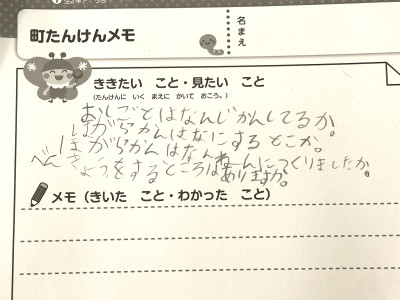 町たんけんメモ
名まえ
ききたい こと・見たい こと
(たんけんに いく まえに かいて おこう。)
おしごとはなんじかんしてるか。
ほがらかかんはなにするとこか。
ほがらかんはなんねんにつくりましたか。
べんきょうをするところはありますか。
メモ(きいた こと・わかった こと)